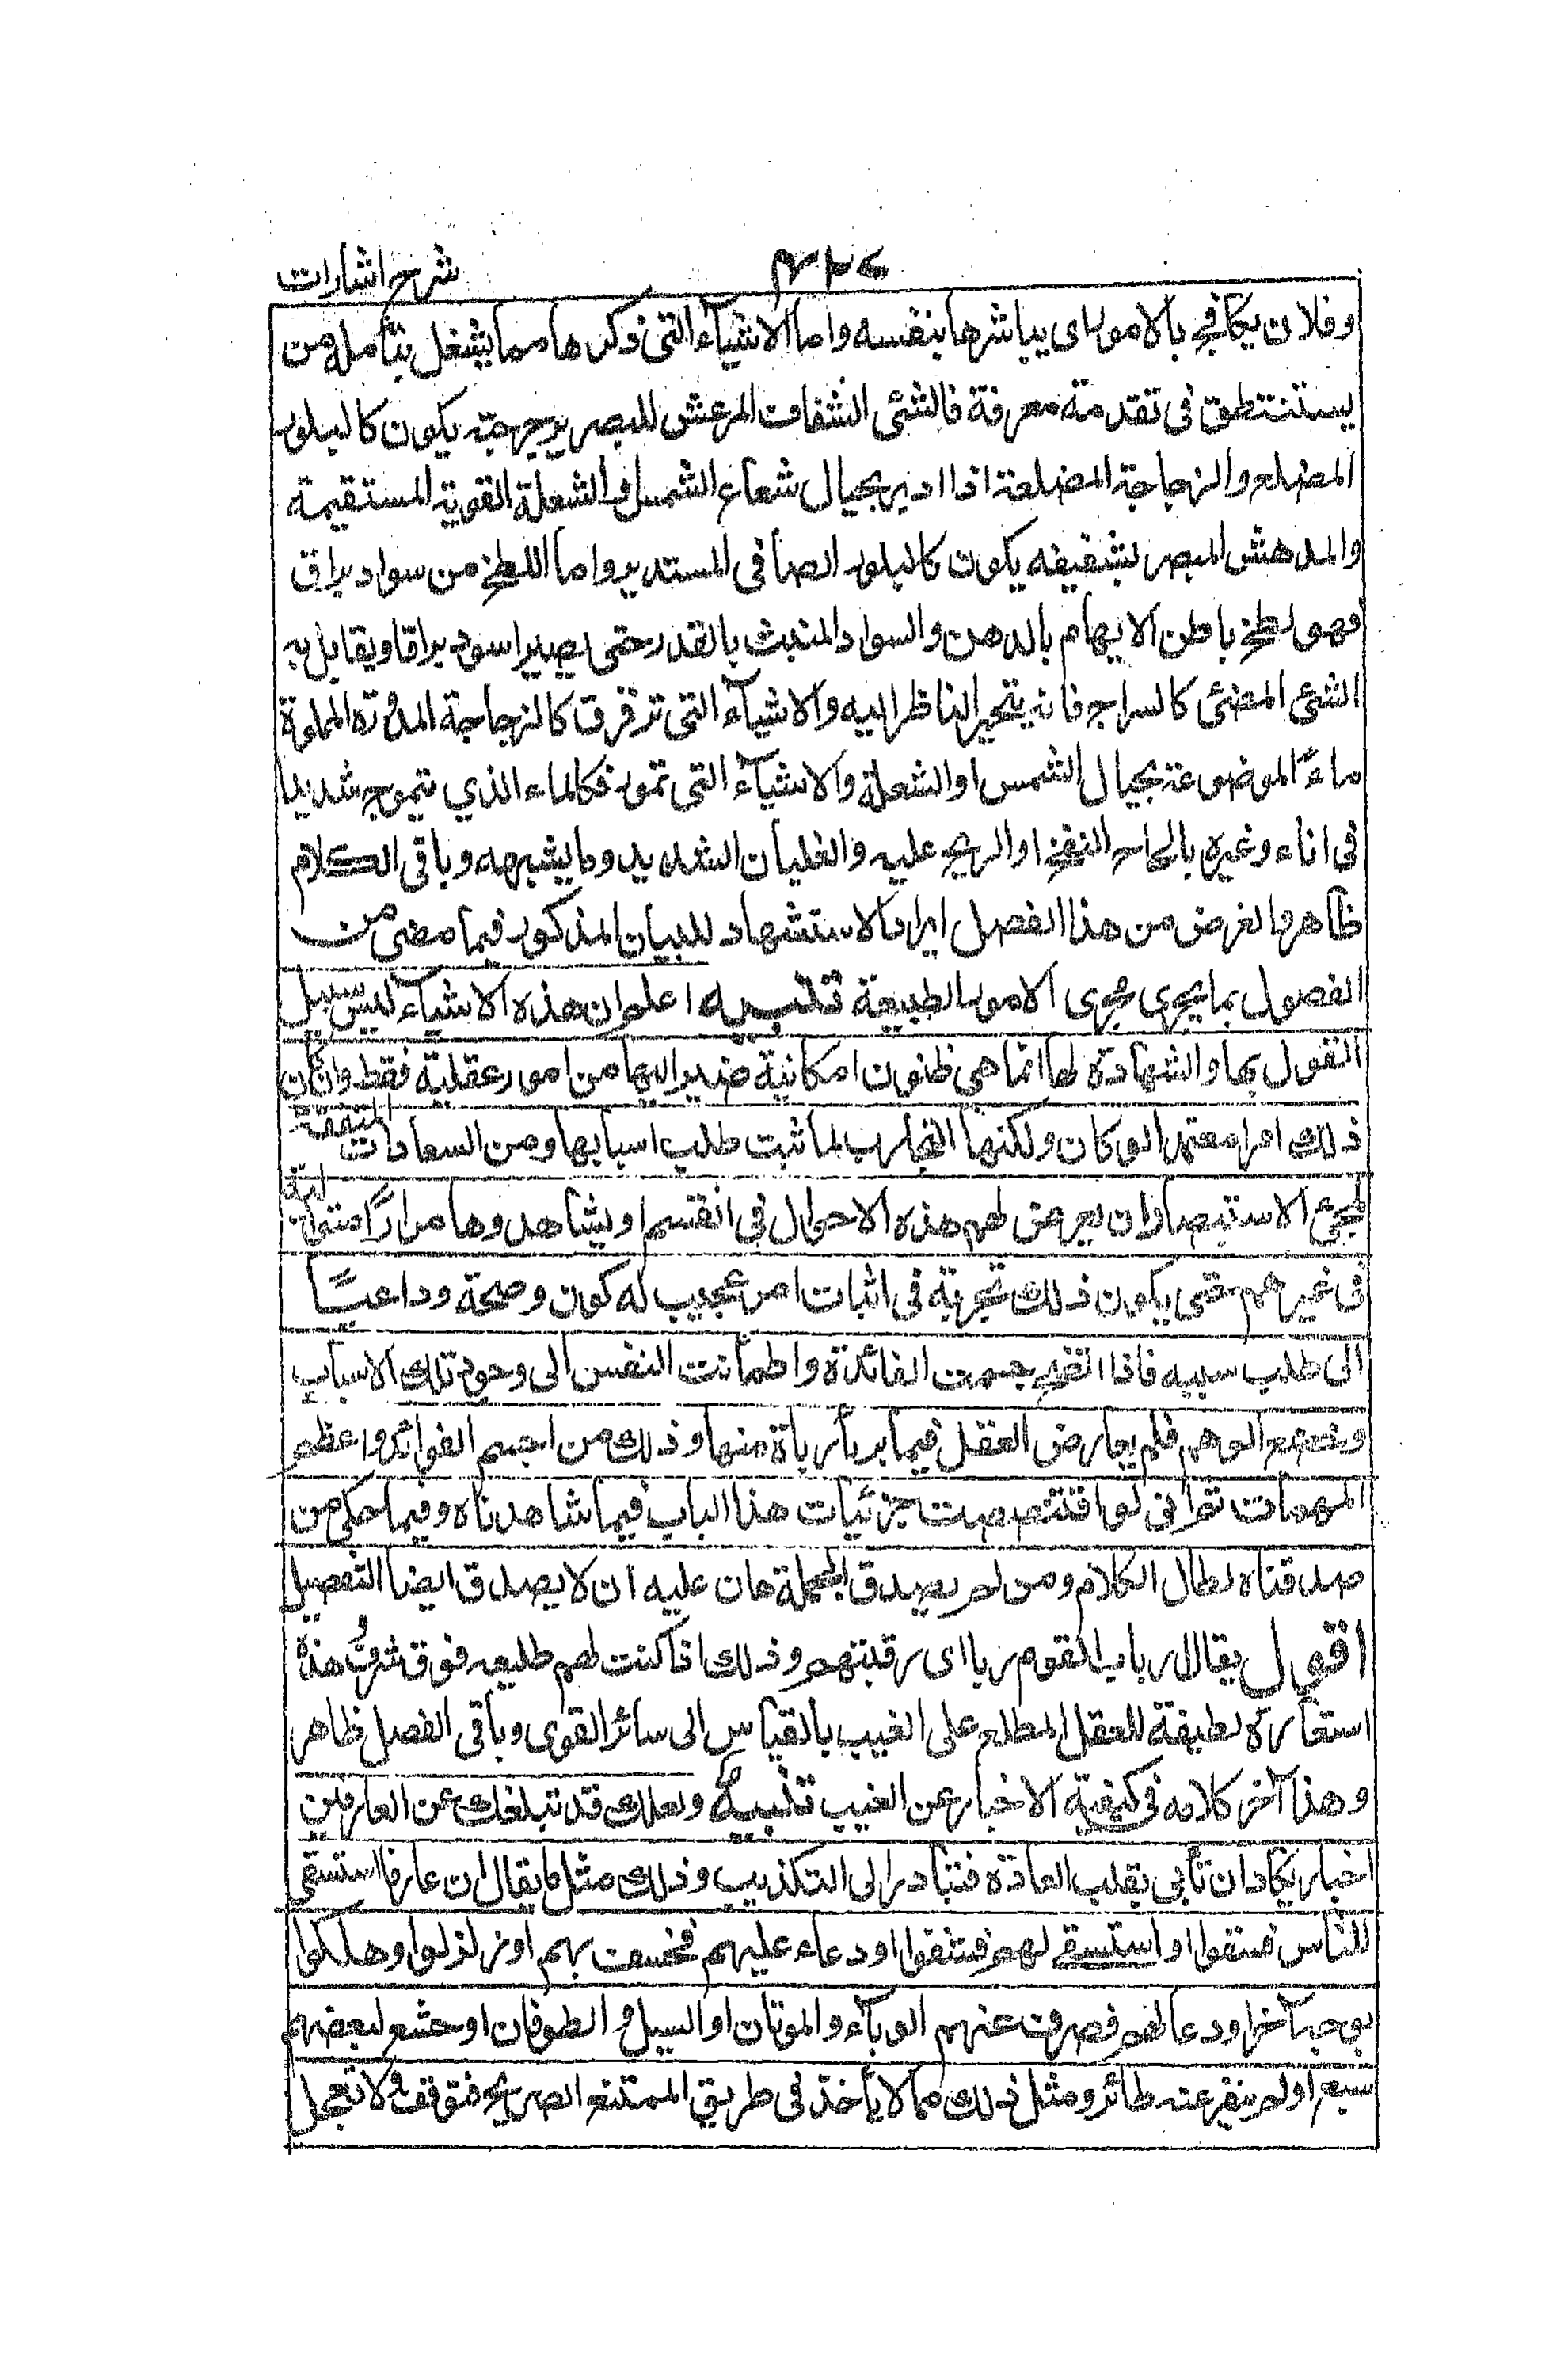 شرح اشارات
وفلان يكافح بالامور اى يباشرها بنفسه واما الاشيآء التى ذكرها مما يشغل بتأمله من
يستنطق فى تقدمة معرفة فالشئى الشفاف المرعش للبصر برجرجته يكون كالبلور
المضلع والزجاجة المضلعة اذا ادير بحيال شعاع الشمس او الشعلة القوية المستقيمة
والمدهش البصر بشفيفه يكون كالبلور الصافى المستدير واما اللطخ من سواد براق
فهو لطخ باطن الابهام بالدهن والسواد المنبث بالقدر حتى يصير اسود براقا ويقابل به
الشئ المضئى كالسراج فانه يتحير الناظر اليه والاشيآء التى ترقرق كالزجاجة المدورة المملوة
ماءً الموضوعة بحيال الشمس او الشعلة والاشيآء التى تمور فكالماء الذي يتموج شديدا
فى اناء وغيره بالحاح النفخ او الريح عليه والغليان الشديد وما يشبهه وباقى الكلام
ظاهر والغرض من هذا الفصل ايراد الاستشهاد للبيان المذكور فيما مضى من
الفصول بما يجرى مجرى الامور الطبيعة تنبيه اعلم ان هذه الاشيآء ليس سبيل
القول بها والشهادة لها انما هى ظنون امكانية صير اليها من امور عقلية فقط وان كان
ذلك امرا معتمدا لو كان ولكنها التجارب لما ثبت طلب اسبابها ومن السعادات المتفقة
لمحبى الاستبصار ان يعرض لهم هذه الاحوال فى انفسهم او يشاهدوها مرارًا متوالية
فى غيرهم حتى يكون ذلك تجربة فى اثبات امر عجيب له كون وصحة وداعيًا
الى طلب سببه فاذا اتضح جسمت الفائدة واطمأنت النفس الى وجود تلك الاسباب
وخضع الوهم فلم يعارض العقل فيما يربأ ربأة منها وذلك من اجسم الفوائد واعظم
المهمات ثم انى لو اقتصصت جزئيات هذا الباب فيما شاهدناه وفيما حكى من
صدقناه لطال الكلام ومن لم يصدق الجملة هان عليه ان لا يصدق ايضا التفصيل
اقول يقال ربات القوم ربا اى رقبتهم وذلك اذا كنت لهم طليعه فوق شرفٍ وهذه
استعارة لطيفة للعقل المطلع على الغيب بالقياس الى سائر القوى وباقى الفصل ظاهر
وهذا آخر كلامه فى كيفية الاخبار عن الغيب تنبيهٌ ولعلك قد تبلغك عن العارفين
اخبار يكاد ان تأتى بقلب العادة فتبادر الى التكذيب وذلك مثل ما يقال ان عارفا استسقى
للناس فسقوا او استسقے لهم فشفوا او دعاء عليهم فخسف بهم او زلزلوا وهلكوا
بوجه آخر او دعا لهم فصرف عنهم الوبآء والموتان او السيل والطوفان او خشع لبعضهم
سبع او لم ينفر عنه طائر ومثل ذلك مما لا يأخذ فى طريق الممتنع الصريح فتوقف ولا تعجل